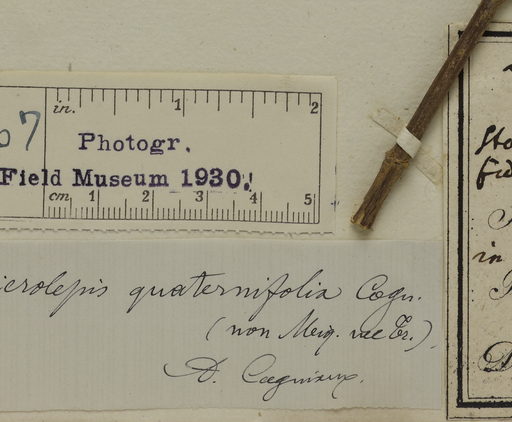 67
in. 1 2
Photogr.
Field Museum 1930.
cm 1 2 3 4 5
erolepis quaternifolia Cogn.
(non Miq. nec Tr.)
A. Cogniaux.
in